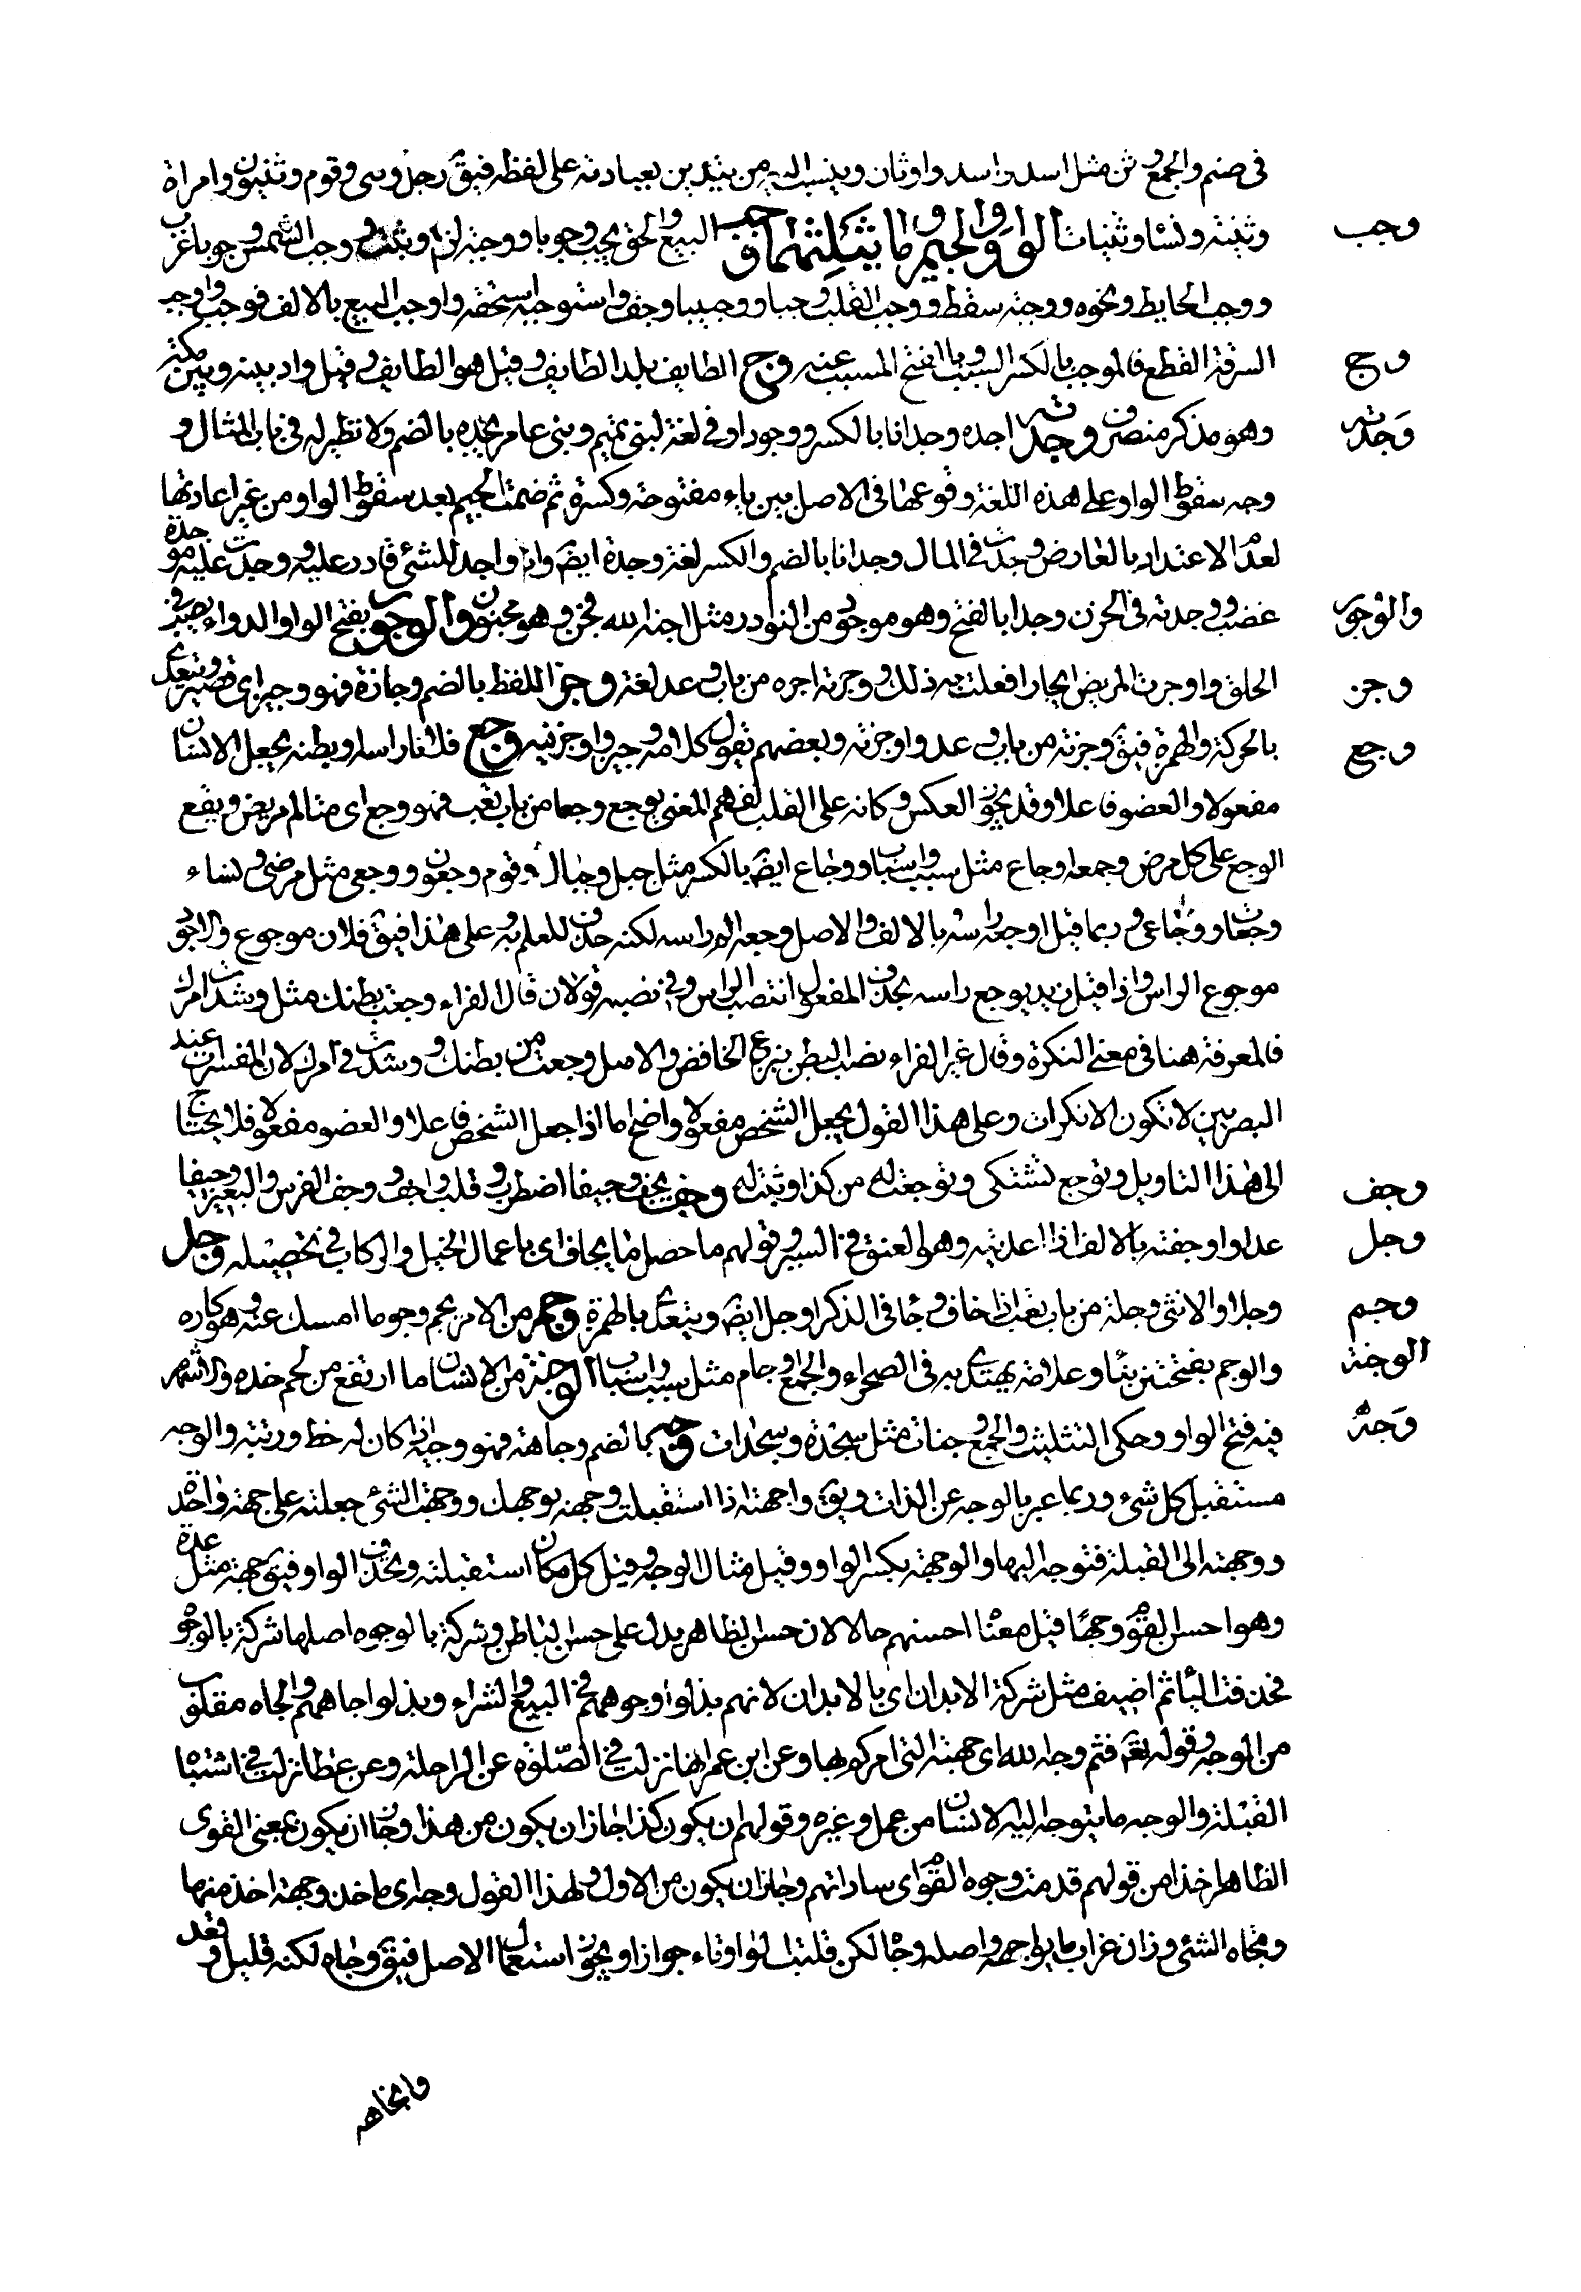 في صنم والجمع وثن مثل اسد واسد واوثان وينسب اليه من يتدين بعبادته على لفظه فيق رجل وثنى وقوم وثنيون وامراة
وجب
وثنية ونساء وثنيات الواو والجيم وما يثلثهما وجب البيع والحق يجب وجوبا ووجبة لزم وثبت ووجبت الشمس وجوبا غربت
ووجب الحايط ونحوه ووجبة سقط ووجب القلب وجبا ووجيبا وجف واستوجبه استحقه واوجب البيع بالالف فوجب واوجبت
وج
السرقة القطع فالموجب بالكسر السبب وبالفتح المسبب عنه وج الطايف بلد الطايف وقيل هو الطايف وقيل واد بينه وبين مكة
وجدته
وهو مذكر منصرف وجدته اجده وجدانا بالكسر ووجودا وفي لغة لبنى تميم وبنى عامر يجده بالضم ولا نظير له في باب المثال و
وجه سقوط الواو على هذه اللغة وقوعها في الاصل بين ياء مفتوحة وكسرة ثم ضمت الجيم بعد سقوط الواو من غير اعادتها
لعدم الاعتداد بالعارض وجدت في المال وجدانا بالضم والكسر لغة وجدة ايضا وانا واجد للشئ قادر عليه ووجدت عليه موجدة
والوجور
غضب ووجدت به في الحزن وجدا بالفتح وهو موجود من النوادر مثل اجنه الله فجن وهو مجنون والوجور بفتح الواو الدواء يصب في
وجز
الحلق واوجرت المريض ايجارا فعلت به ذلك ووجرته اجره من باب وعد لغة وجز اللفظ بالضم وجازة فهو وجيز اى قصير ويتعدى
وجع
بالحركة والهمزة فيق وجزته من باب وعد واوجزته وبعضهم يقول وجز كلامه واوجز فيه وجع فلانا راسه وبطنه يجعل الانسان
مفعولا والعضو فاعلا وقد يجوز العكس وكانه على القلب لفهم المعنى يوجع وجعا من باب تعب فهو وجع اى متالم مريض ويقع
الوجع على كل مرض وجمعه اوجاع مثل سبب واسباب ووجاع ايضا بالكسر مثل جبل وجبال وقوم وجعون ووجعى مثل مرضى ونساء
وجعات ووجاعى وربما قيل اوجعه راسه بالالف والاصل وجعه الم راسه لكنه حذف للعلم به وعلى هذا فيق فلان موجوع والاجود
موجوع الراس واذا قيل زيد يوجع راسه بحذف المفعول انتصب الراس وفي نصبه قولان قال الفراء وجعت بطنك مثل رشدت امرك
فالمعرفة هنا في معنى النكرة وقال غير الفراء نصب البطن بنزع الخافض والاصل وجعت من بطنك ورشدت في امرك لان المفسرات عند
البصريين لا تكون الا نكرات وعلى هذا القول يجعل الشخص مفعولا واضح اما اذا جعل الشخص فاعلا والعضو مفعولا فلا يحتاج
وجف
الى هذا التاويل وتوجع تشتكى وتوجعت له من كذا رثيت له وجف يجف وجيفا اضطرب وقلب واجف ووجف الفرس والبعير وجيفا
وجل
عدا واوجفته بالالف اذا اعديته وهو العنق في السير وقولهم ما حصل بايجاف اى باعمال الخيل والركاب في تحصيله وجل
وجم
وجلا والانثى وجلة من باب تعب اذا خاف وجاء في الذكر اوجل ايضا ويتعدى بالهمزة وجم من الامر يجم وجوما امسك عنه وهو كاره
الوجنة
والوجم بفتحتين بناء وعلامة يهتدى به في الصحراء والجمع اوجام مثل سبب واسباب الوجنة من الانسان ما ارتفع من لحم خده والاشهر
وجه
فيه فتح الواو وحكى التثليث والجمع وجنات مثل سجدة وسجدات وجه بالضم وجاهة فهو وجيه اذا كان له حظ ورتبة والوجه
مستقبل كل شيء وربما عبر بالوجه عن الذات ويق واجهته اذا استقبلت وجهه بوجهك ووجهت الشئ جعلته على جهة واحدة
ووجهته الى القبلة فتوجه اليها والوجهة بكسر الواو وقيل مثال الوجه وقيل كل مكان استقبلته وتحذف الواو فيق جهة مثل عدة
وهو احسن القوم وجها قيل معناه احسنهم حالا لان حسن الظاهر يدل على حسن الباطن وشركة الوجوه اصلها شركة بالوجوه
فحذفت الباء ثم اضيفت مثل شركة الابدان اى بالابدان لانهم بذلوا وجوههم في البيع والشراء وبذلوا جاههم والجاه مقلوب
من الوجه وقوله تعم فثم وجه الله اى جهته التى امركم بها وعن ابن عمر انها نزلت في الصلوة عن الراحلة وعن عطا نزلت في اشتباه
القبلة والوجه ما يتوجه اليه الانسان من عمل وغيره وقولهم ان يكون كذا جاز ان يكون من هذا وجاز ان يكون بمعنى القوى
الظاهر اخذا من قولهم قدمت وجوه القوم اى ساداتهم وجاز ان يكون من الاول ولهذا القول وجه اى ماخذ وجهة اخذ منها
وتجاه الشئ وزان غراب ما يواجهه واصله وجاه لكن قلبت الواو تاء جوازا ويجوز استعمال الاصل فيق وجاه لكنه قليل وقعد
واتجاهه